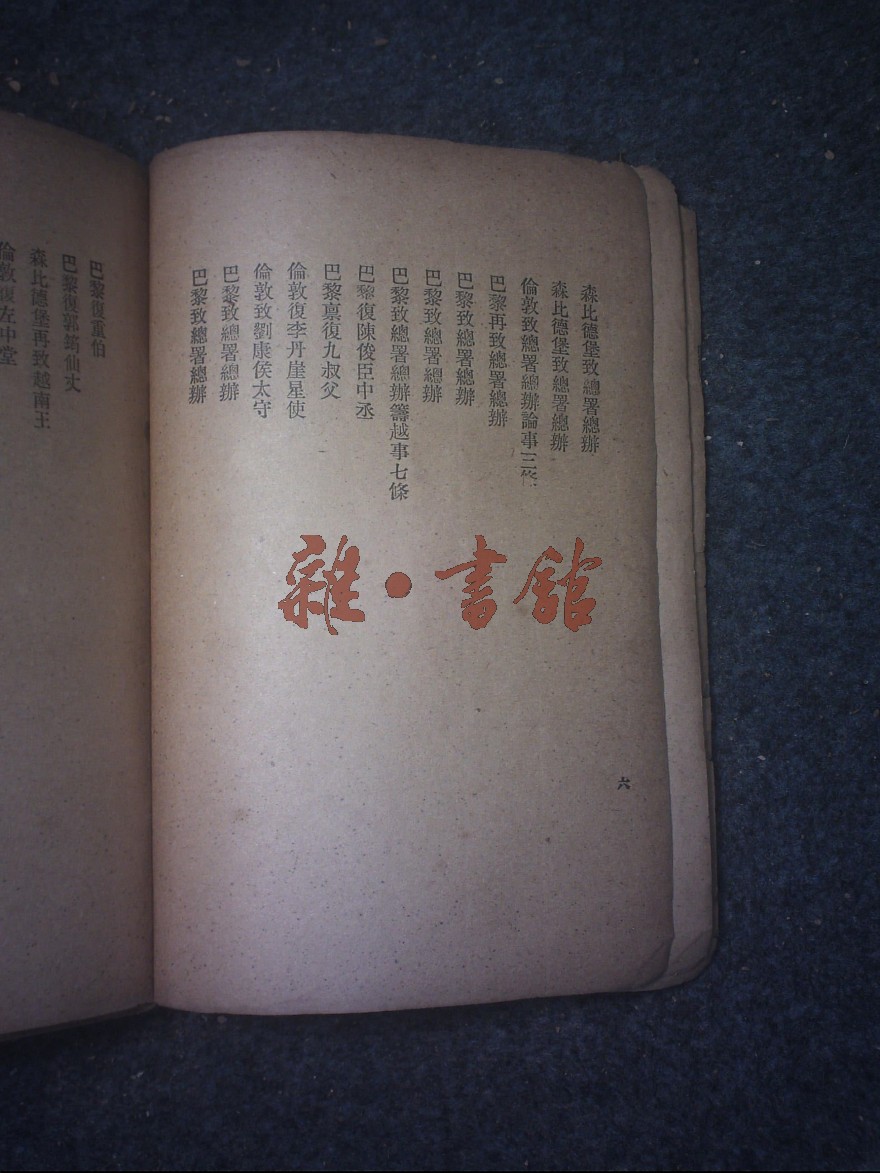 森比德堡致總署總辦
森比德堡致總署總辦
倫敦致總署總辦論事三條
巴黎再致總署總辦
巴黎致總署總辦
巴黎致總署總辦
巴黎致總署總辦籌越事七條
巴黎復陳俊臣中丞
巴黎禀復九叔父
倫敦復李丹崖星使
倫敦致劉康侯太守
巴黎致總署總辦
巴黎致總署總辦
六
巴黎復重伯
巴黎復郭筠仙丈
森比德堡再致越南王
倫敦復左中堂
雜·書館